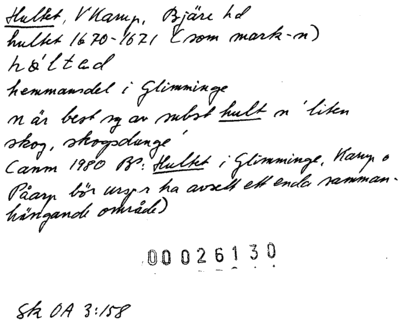 Hultet, V Karup, Bjäre hd
hultet 1670-1671 (som mark-n)
hóltəd
hemmansdel i Glimminge
n är best sg av subst hult n 'liten
skog, skogsdunge'
(anm 1980 BP: Hultet i Glimminge, Karup o
Påarp bör urspr ha avsett ett enda samman-
hängande område)
00026130
Sk OA 3:158